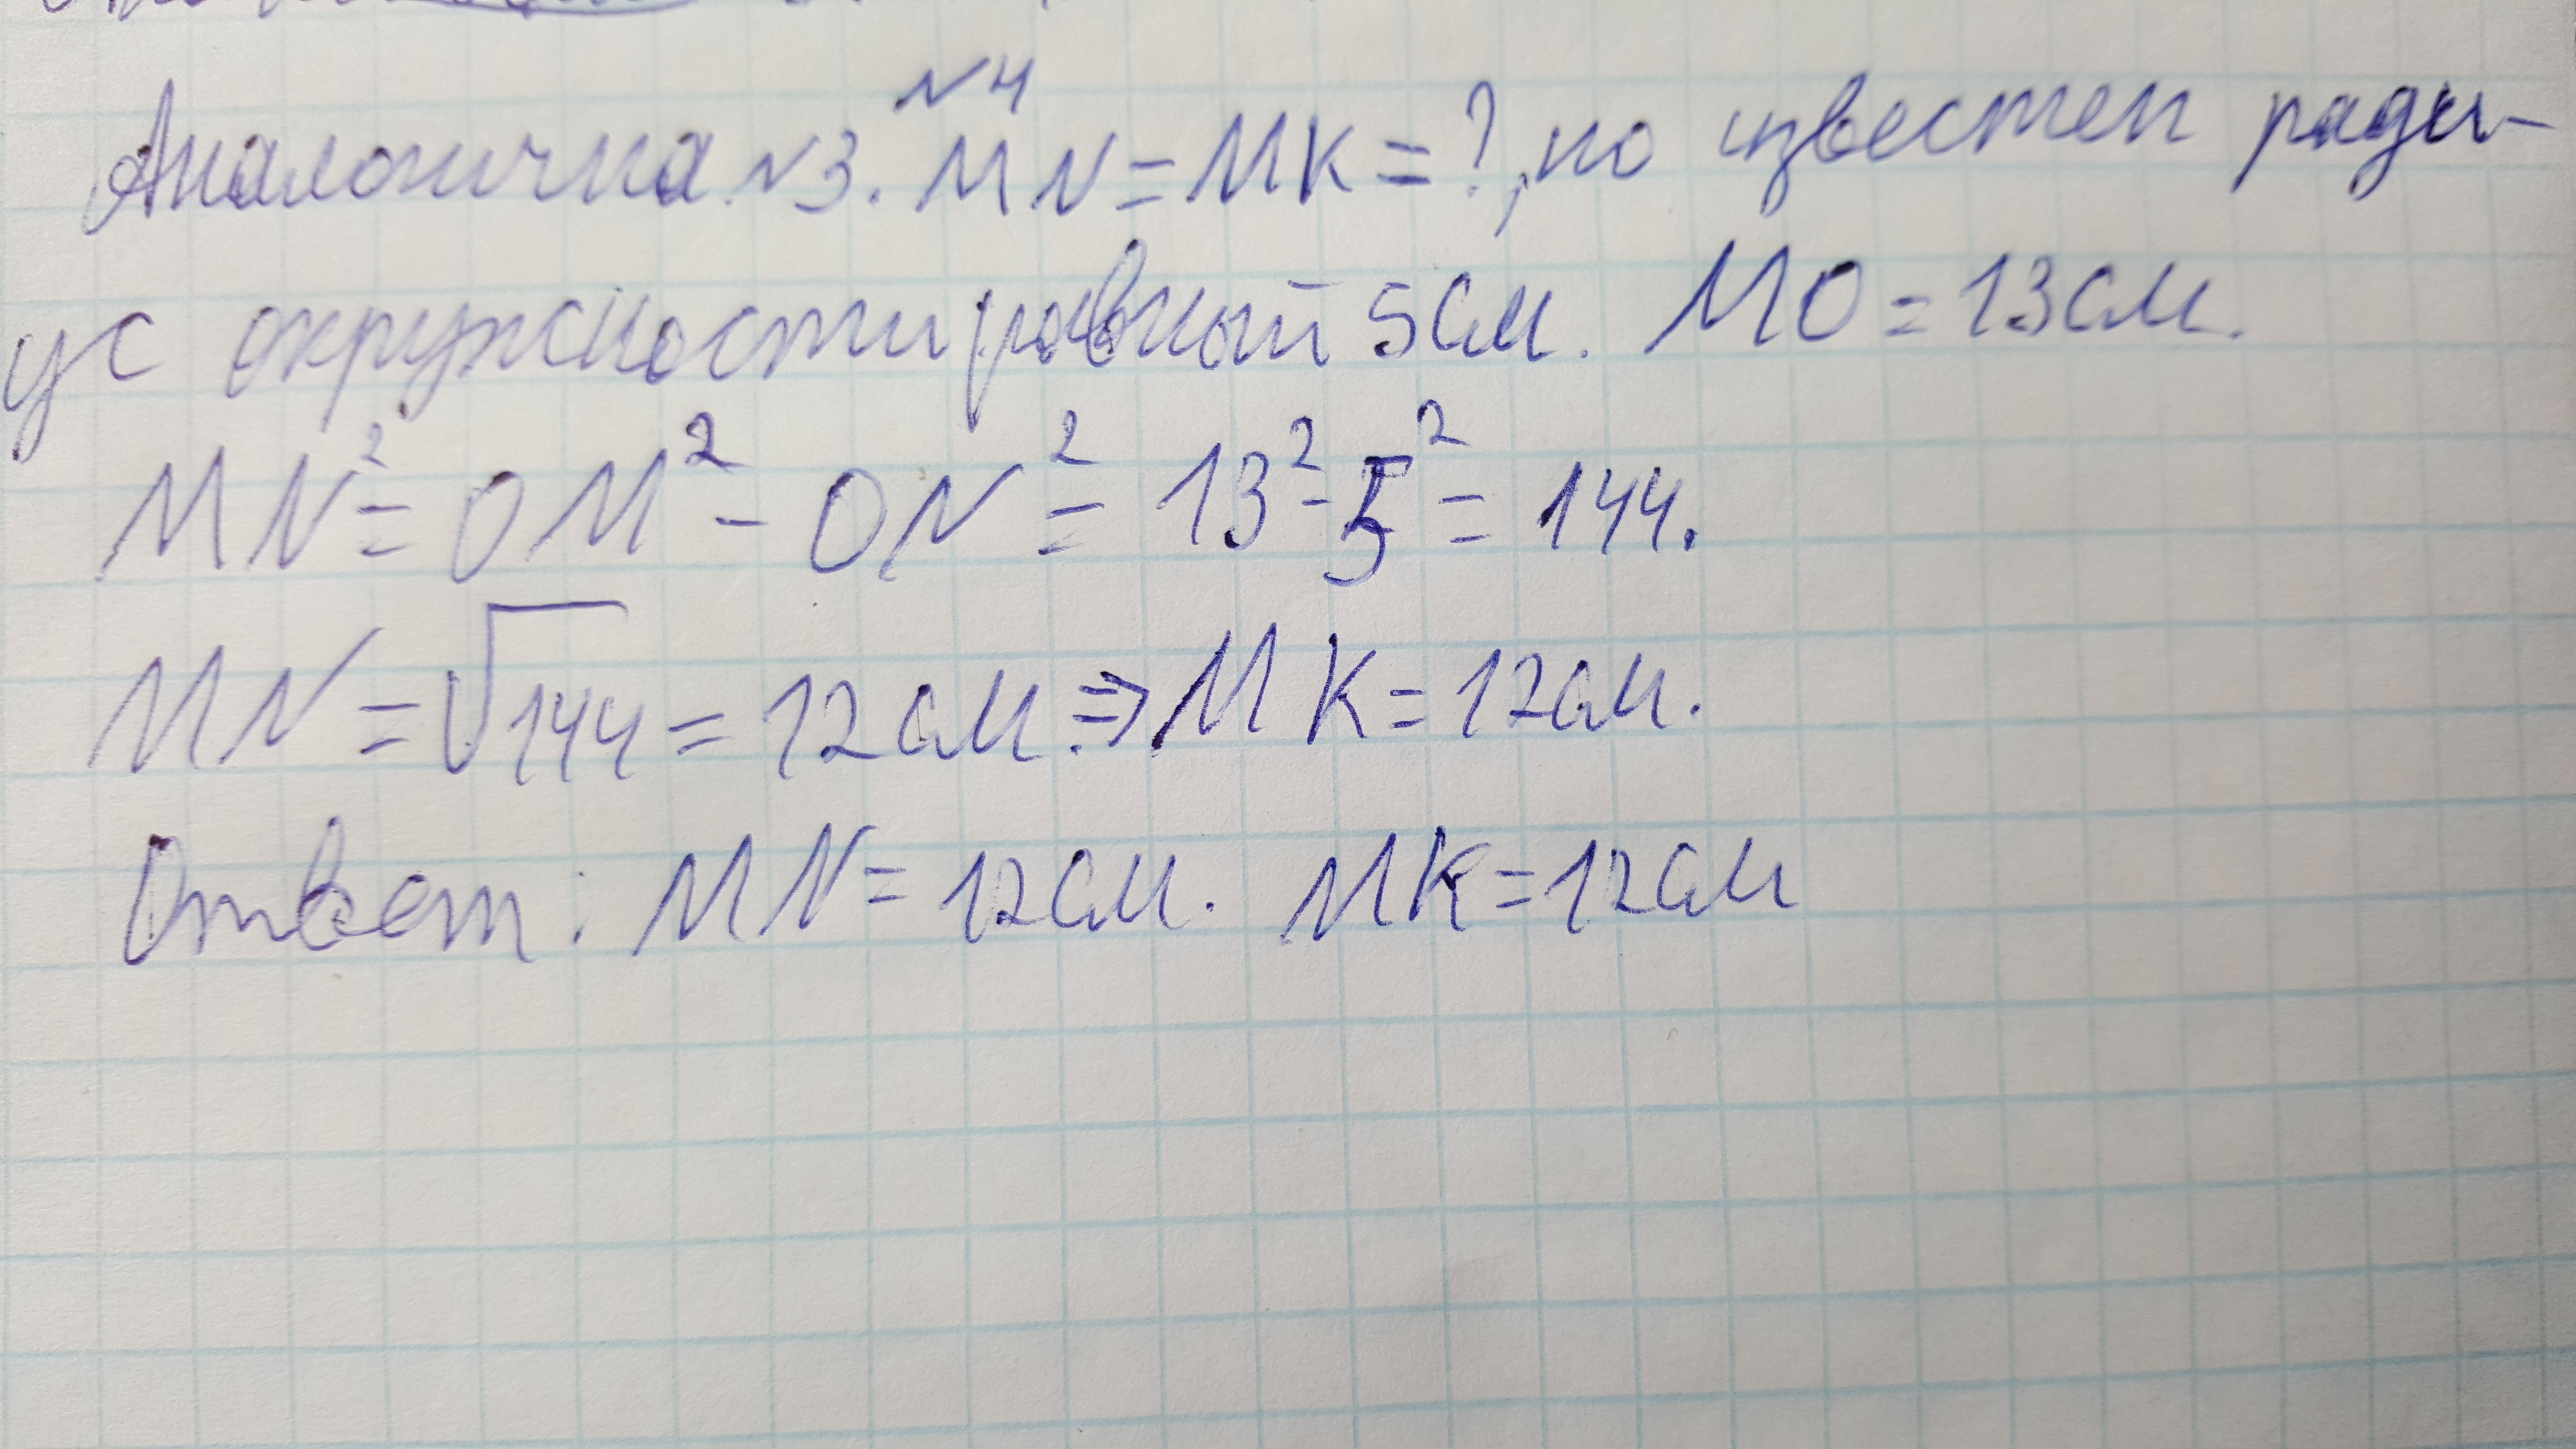 N4
Аналогична N3. MN=MK=?, но известен ради-
ус окружности, равной 5см. MO=13см.
MN²=OM²-ON²=13²-5²=144.
MN=√144=12см⇒MK=12см.
Ответ: MN=12см. MK=12см